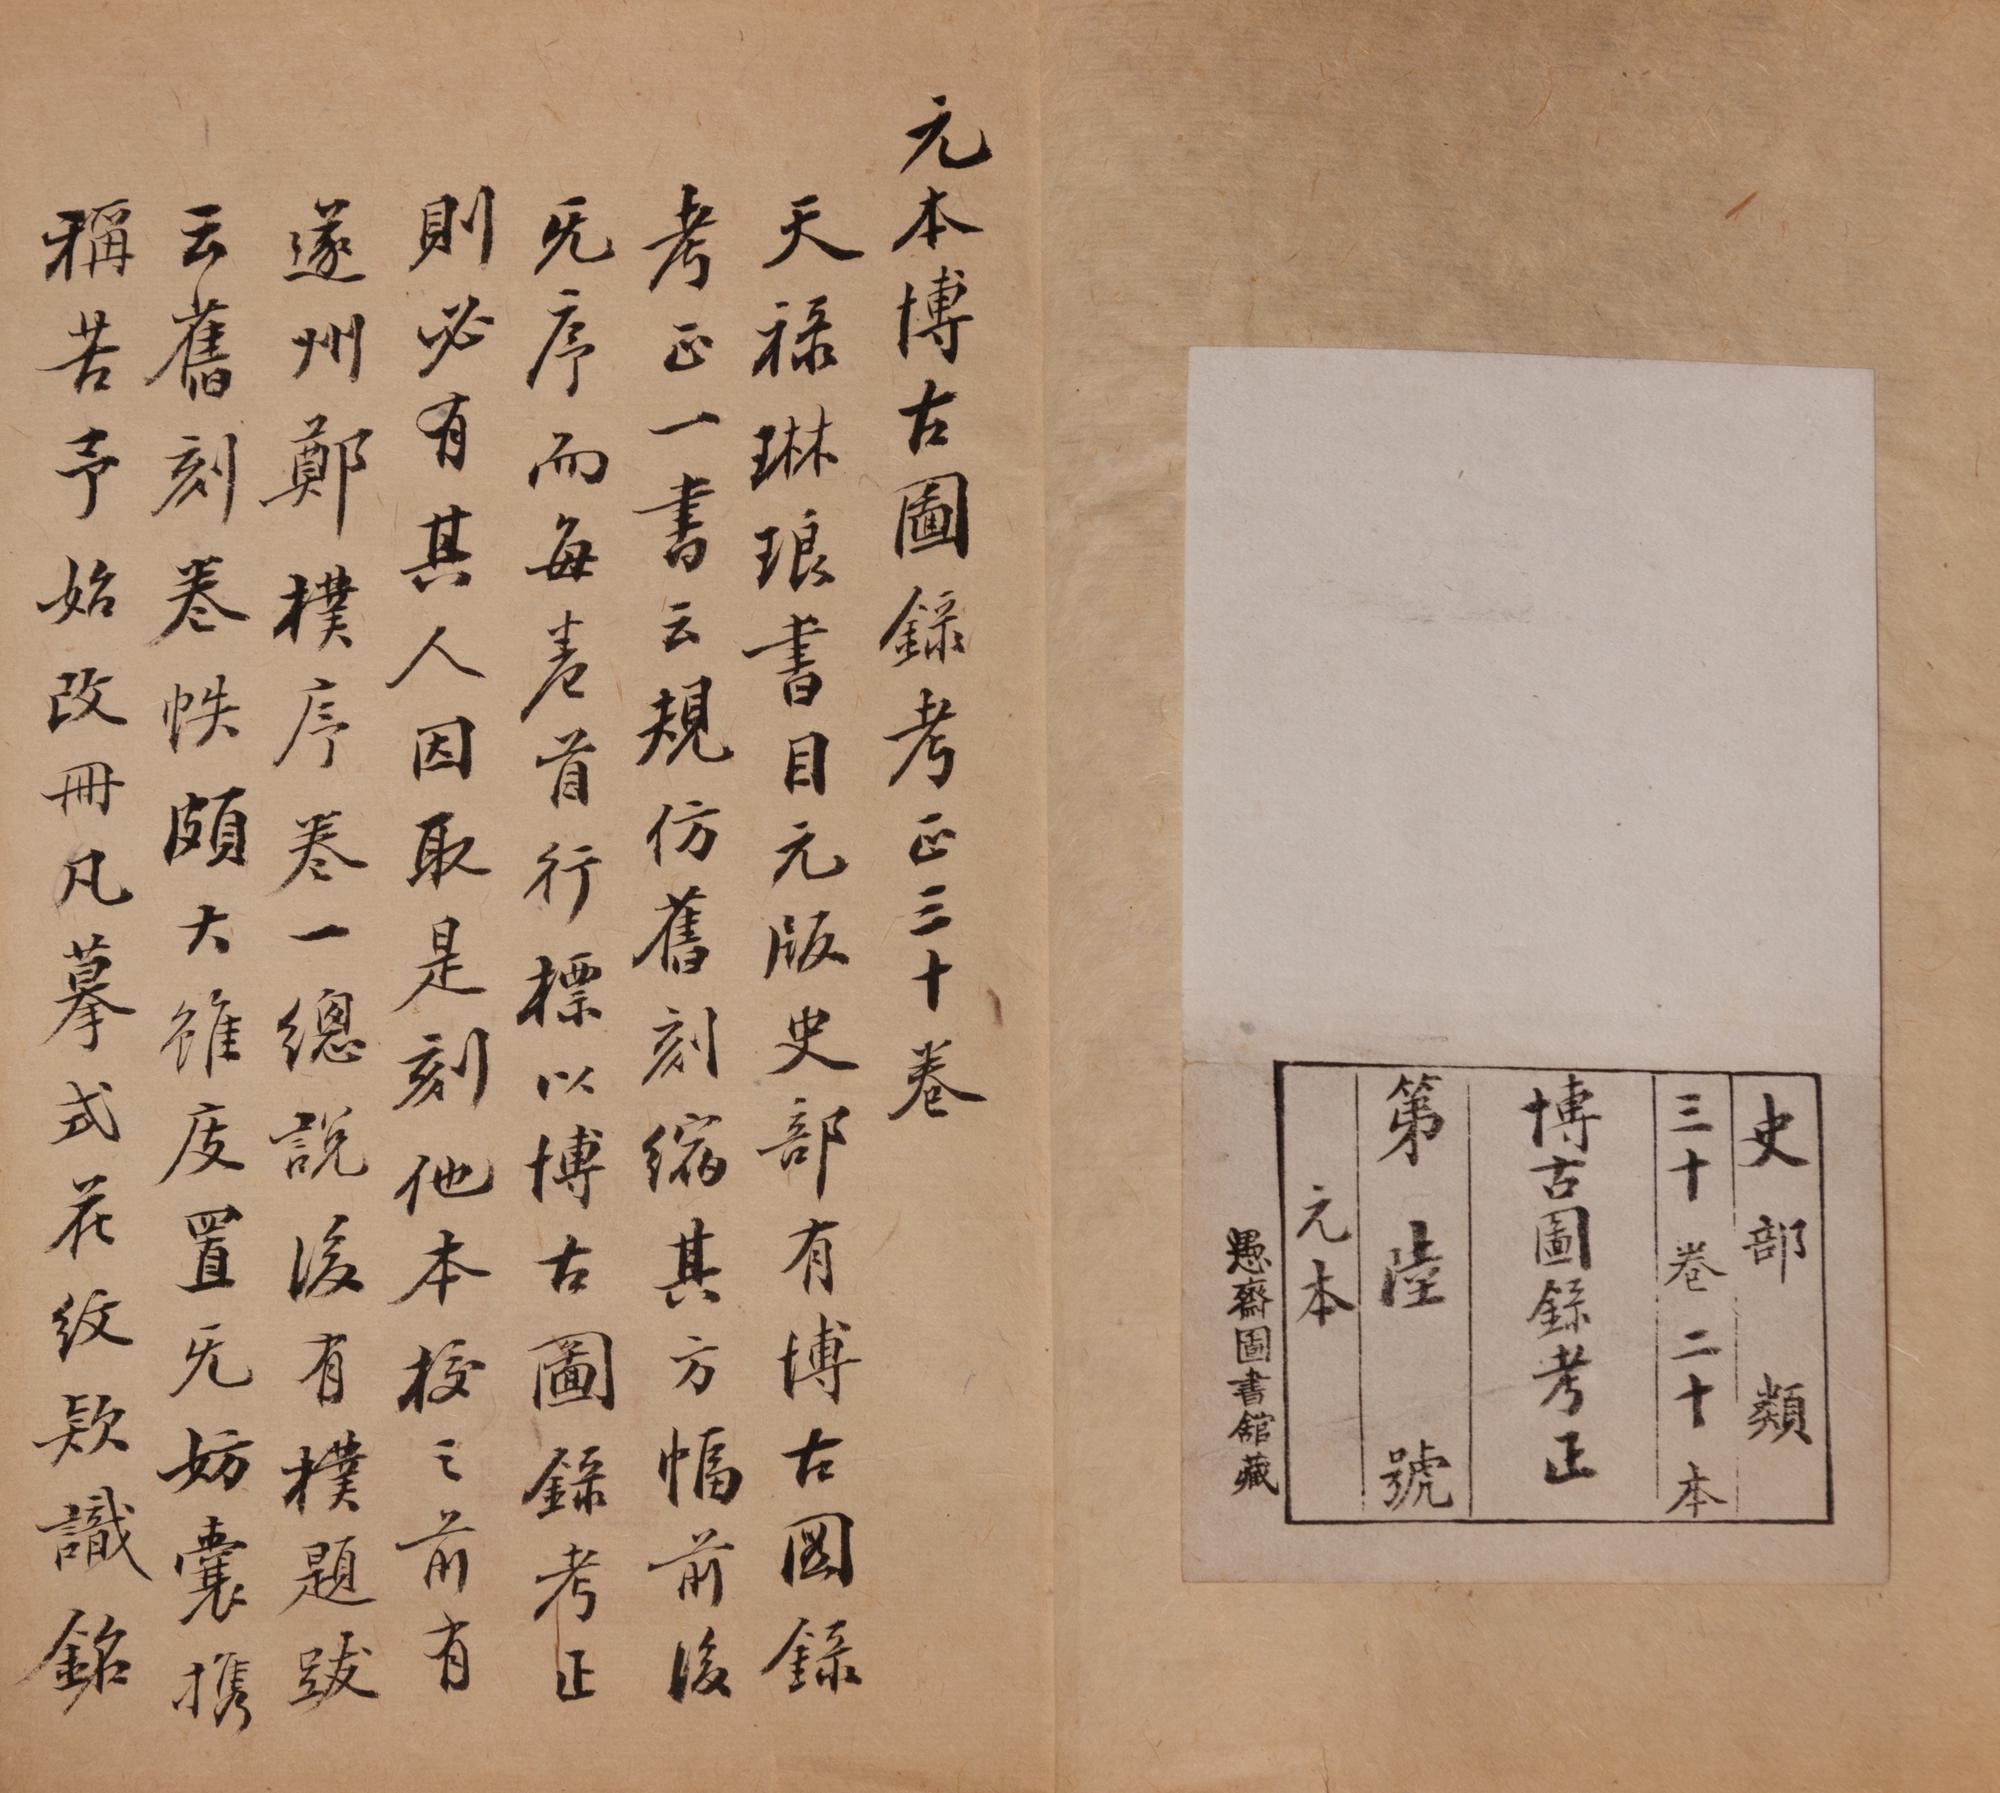 史部類
三十卷二十本
博古圖錄考正
第陸號
元本
愚齋圖書館藏
元本博古圖錄考正三十卷
天祿琳琅書目元版史部有博古圖錄
考正一書云規仿舊刻縮其方幅前後
旡序而每卷首行標以博古圖錄考正
則必有其人因取是刻他本校之前有
遂州鄭樸序卷一總說後有樸題跋
云舊刻卷帙頗大雖庋置旡妨囊携
稱苦予始改冊凡摹式花紋款識銘